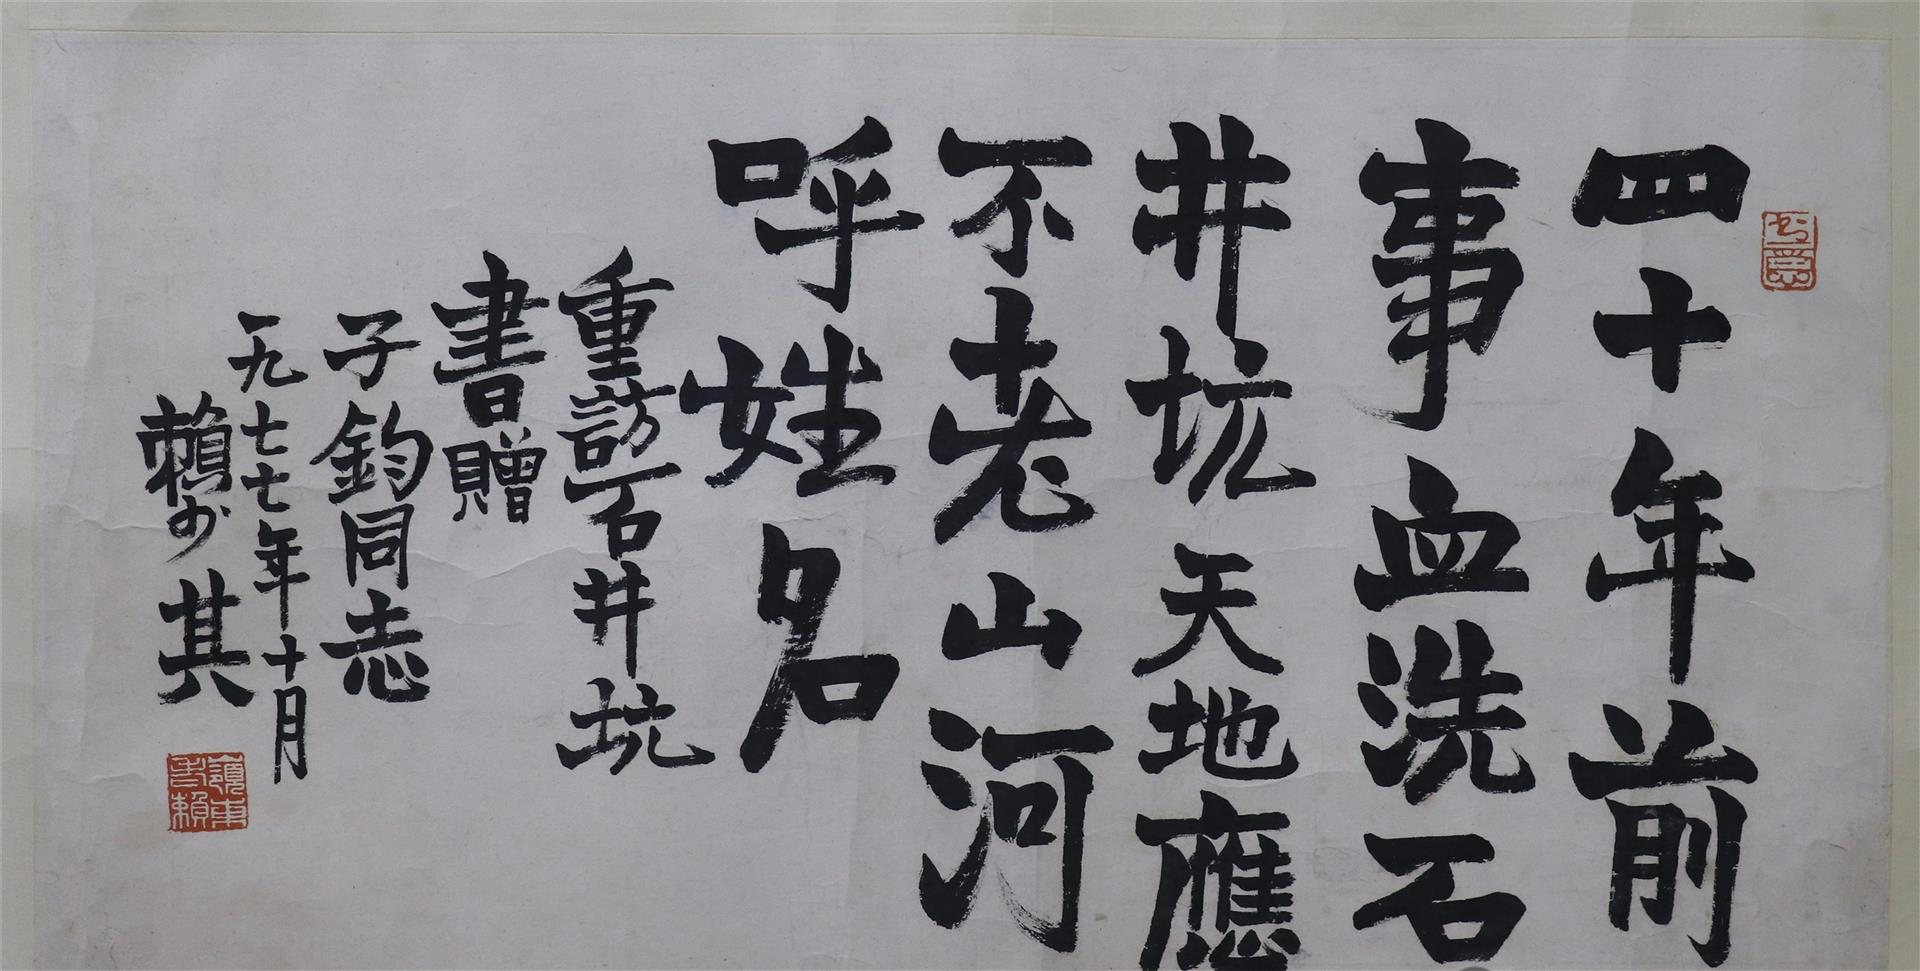 四十年前
事血洗石
井坑天地應
不老山河
呼姓名
重訪石井坑
書贈
子鈞同志
一九七七年十月
賴少其